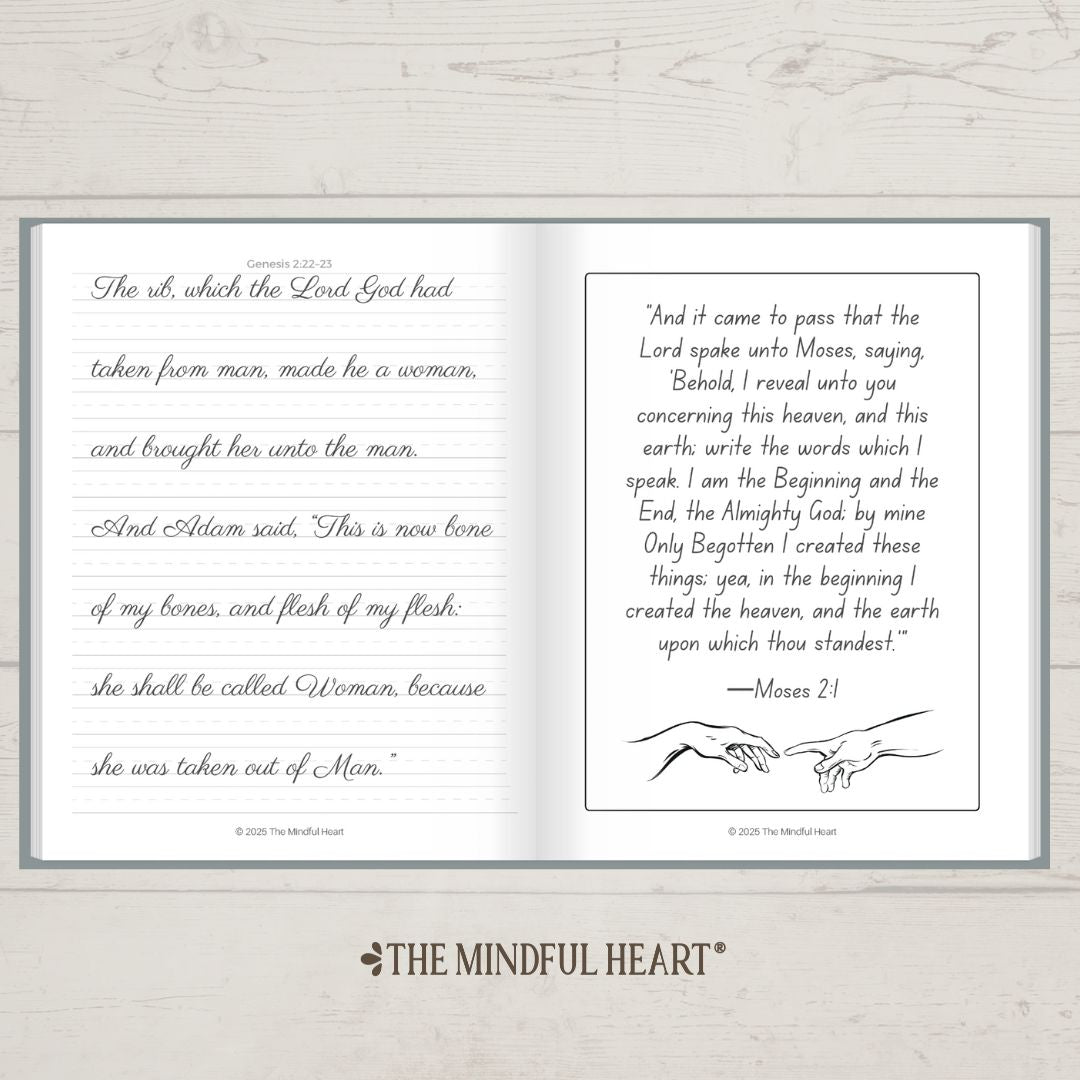 Genesis 2:22–23
The rib, which the Lord God had
taken from man, made he a woman,
and brought her unto the man.
And Adam said, “This is now bone
of my bones, and flesh of my flesh:
she shall be called Woman, because
she was taken out of Man.”
© 2025 The Mindful Heart
"And it came to pass that the
Lord spake unto Moses, saying,
'Behold, I reveal unto you
concerning this heaven, and this
earth; write the words which I
speak. I am the Beginning and the
End, the Almighty God; by mine
Only Begotten I created these
things; yea, in the beginning I
created the heaven, and the earth
upon which thou standest.'"
—Moses 2:1
© 2025 The Mindful Heart
THE MINDFUL HEART®